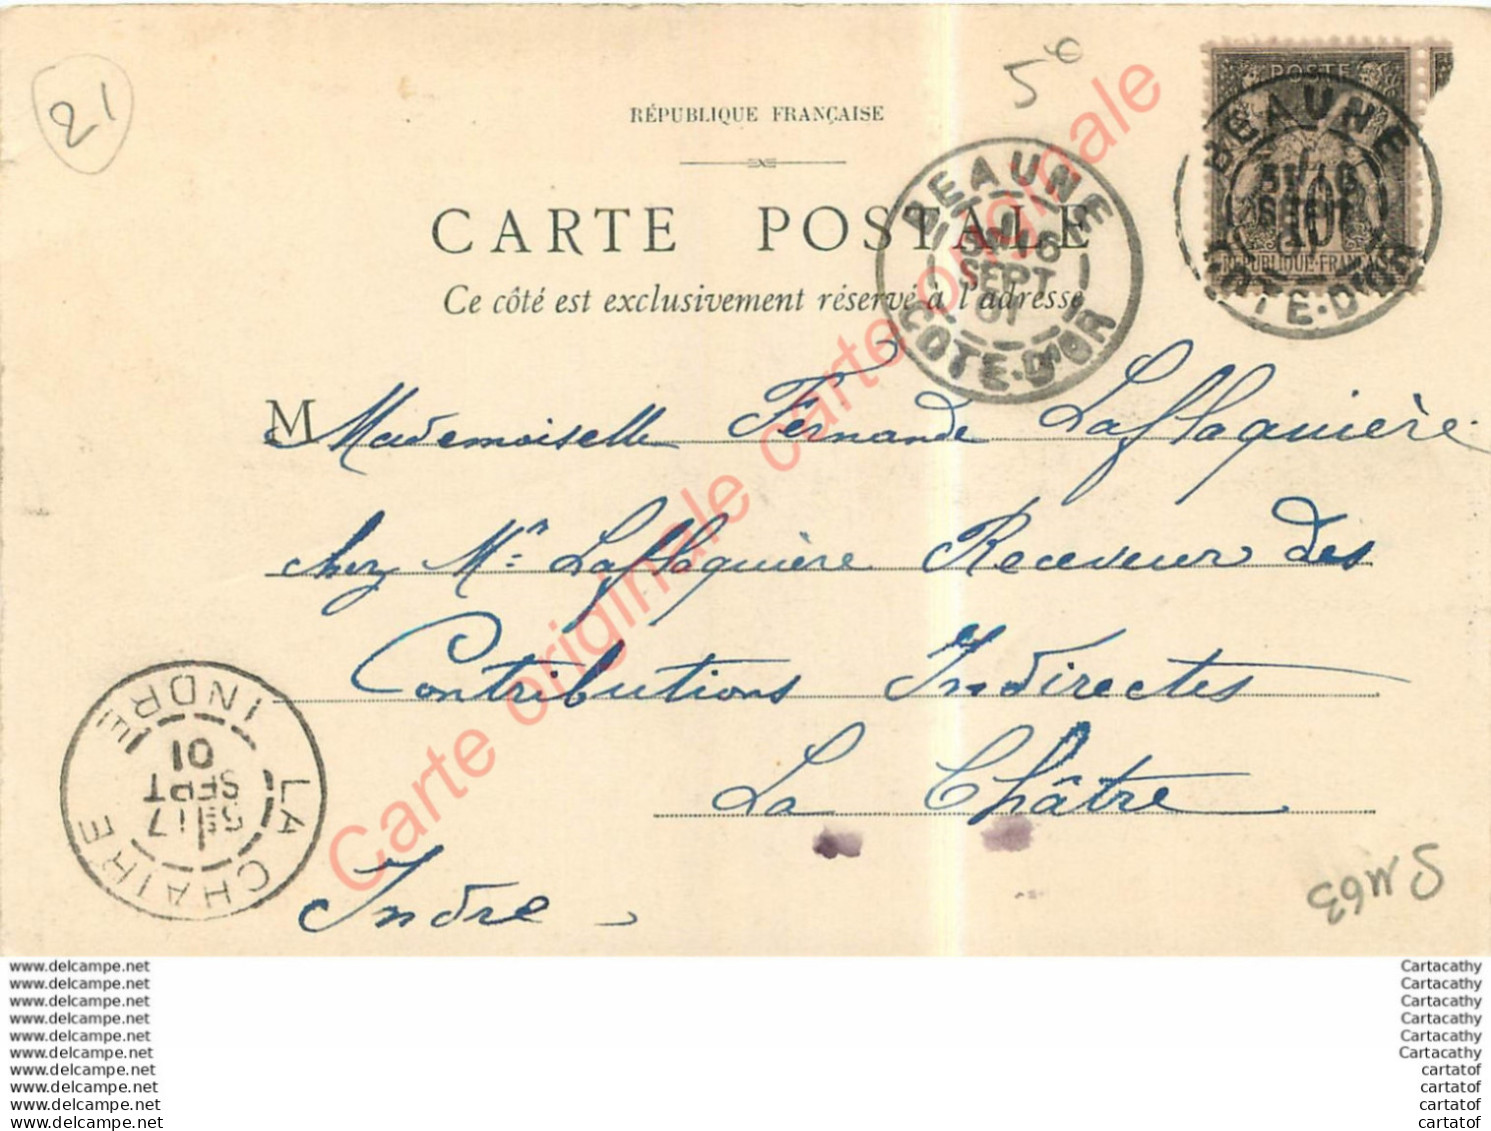 21
5e
RÉPUBLIQUE FRANÇAISE
CARTE POSTALE
Ce côté est exclusivement réservé à l'adresse
BEAUNE
16
SEPT
01
CÔTE-D'OR
POSTE
BEAUNE
16
SEPT
10
REPUBLIQUE FRANÇAISE
CÔTE-D'OR
M Mademoiselle Fernande Laflaquière
chez Mr. Laflaquière Receveur des
Contributions Indirectes
La Châtre
Indre
LA CHATRE
17
SEPT
01
INDRE
Carte originale carte originale carte originale
www.delcampe.net
www.delcampe.net
www.delcampe.net
www.delcampe.net
www.delcampe.net
www.delcampe.net
www.delcampe.net
www.delcampe.net
www.delcampe.net
www.delcampe.net
Cartacathy
Cartacathy
Cartacathy
Cartacathy
Cartacathy
Cartacathy
cartatof
cartatof
cartatof
cartatof